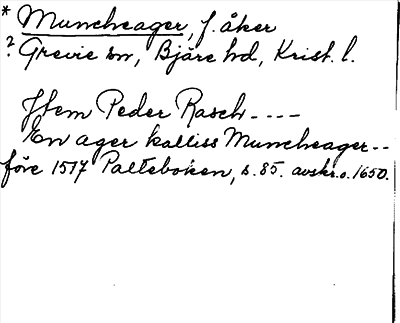 * Muncheager, f. åker
? Grevie sn, Bjäre hd, Krist. l.
Jtem Peder Rasch ----
En ager kalliss Muncheager --
före 1517 Palteboken, s. 85. avskr. o. 1650.